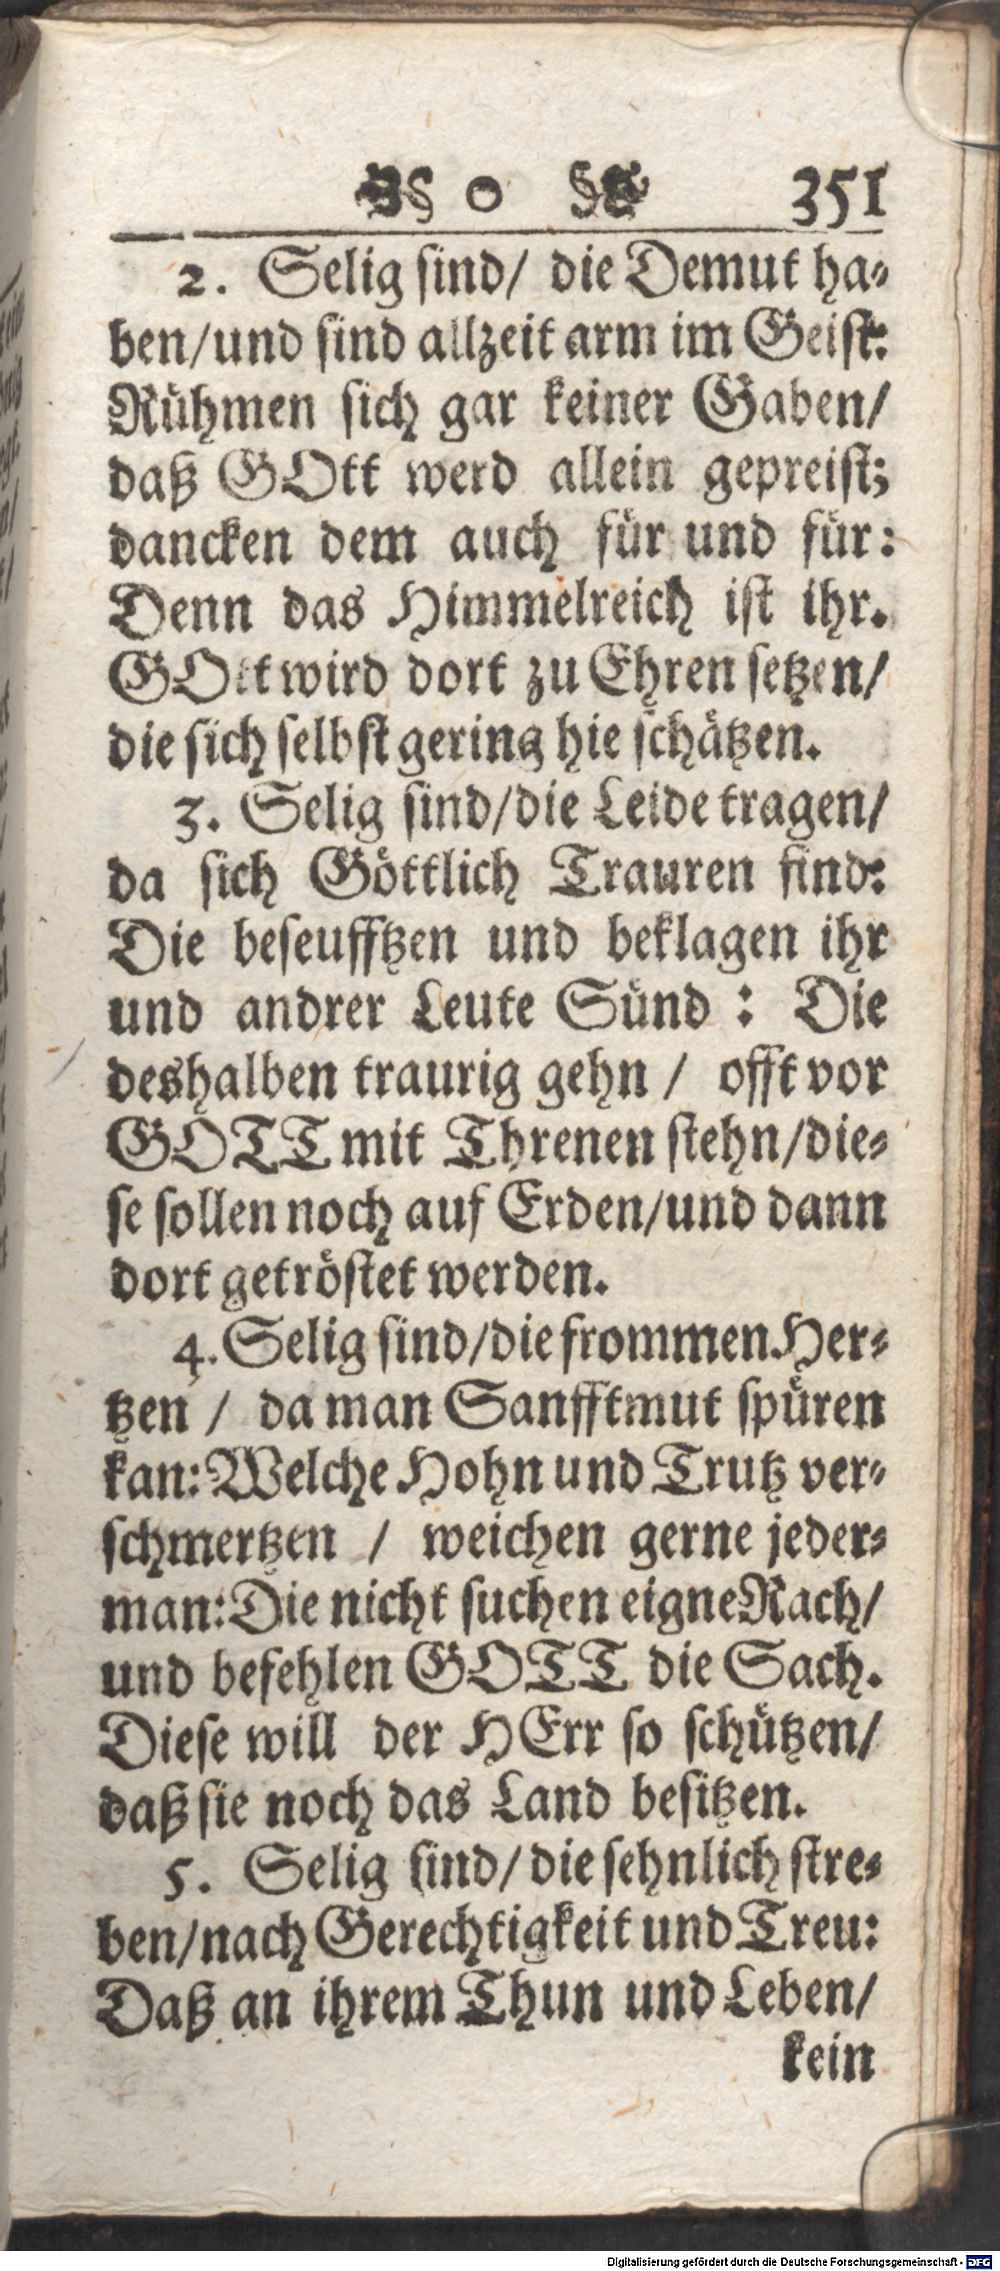 o 351
2. Selig sind/ die Demut ha-
ben/und sind allzeit arm im Geist:
Rühmen sich gar keiner Gaben/
daß GOtt werd allein gepreist;
dancken dem auch für und für:
Denn das Himmelreich ist ihr.
GOtt wird dort zu Ehren setzen/
die sich selbst gering hie schätzen.
3. Selig sind/die Leide tragen/
da sich Göttlich Trauren find:
Die beseufftzen und beklagen ihr
und andrer Leute Sünd : Die
deshalben traurig gehn / offt vor
GOTT mit Threnen stehn/die-
se sollen noch auf Erden/und dann
dort getröstet werden.
4. Selig sind/die frommen Her-
tzen / da man Sanfftmut spüren
kan: Welche Hohn und Trutz ver-
schmertzen / weichen gerne jeder-
man: Die nicht suchen eigne Rach/
und befehlen GOTT die Sach.
Diese will der HErr so schützen/
daß sie noch das Land besitzen.
5. Selig sind/ die sehnlich stre-
ben/nach Gerechtigkeit und Treu:
Daß an ihrem Thun und Leben/
kein
Digitalisierung gefördert durch die Deutsche Forschungsgemeinschaft - DFG